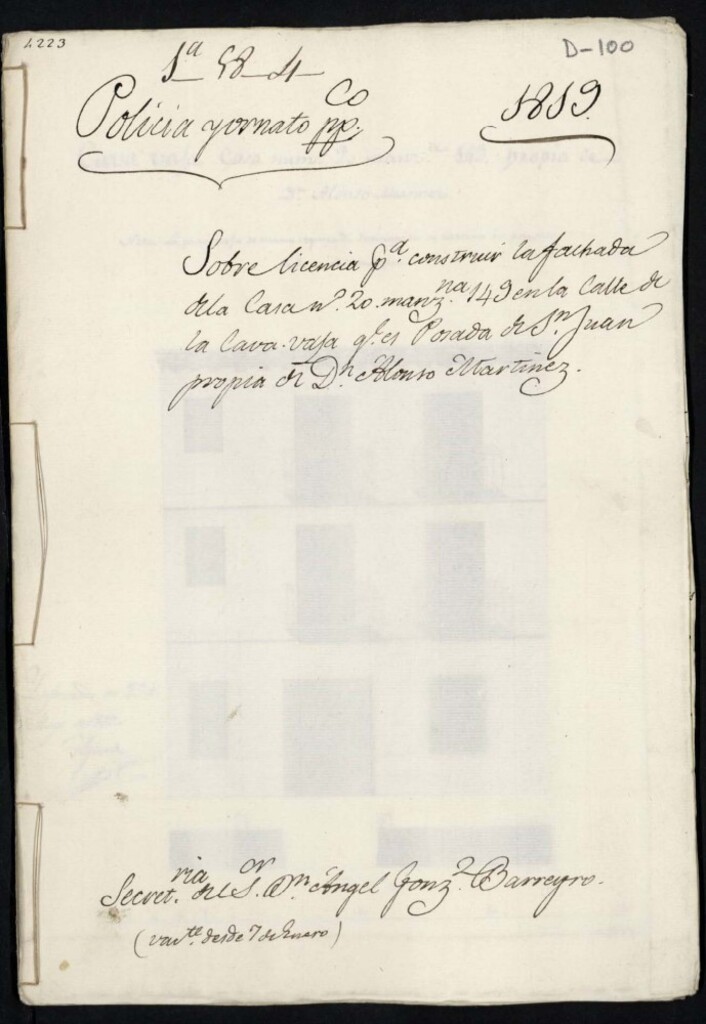 1.223
D-100
1ª 58-4
Policia y ornato ppco
1819.
Sobre licencia pª construir la fachada
de la Casa nº 20 manzna 149 en la Calle de
la Cava-vaja qe es Posada de Sn Juan
propia de Dn Alonso Martinez.
Secretria del Sor Dn Angel Gonzz Barreyro.
(vacte desde 7 de Enero)